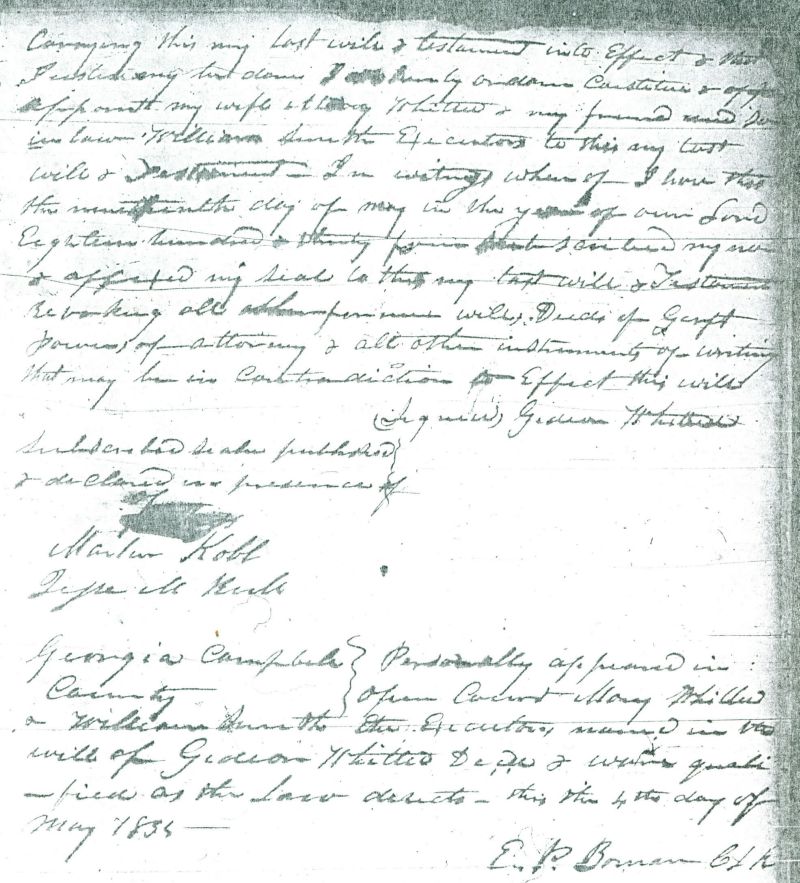 Carrying this my last will & testament into Effect & that
I do hereby ordain Constitute & 
appoint my wife Mary Whitted & my friend and Son
in law William Smith Executors to this my last
will & Testament – In witness where of I have this
the day of may in the year of our Lord
Eighteen hundred & thirty four subscribed my
& affixed my seal to this my last will & Testament
Revoking all former wills, Deeds of Gift
powers of attorney & all other instruments of writing
that may be in Contradiction to Effect this will
(Signed) Gideon Whitted
Subscribed seald published
& declared in presence of
Martin Kolb
Jesse M
Georgia Campbell } Personally appeared in
County } open Court Mary Whitted
& William Smith the Executors named in the
will of Gideon Whitted Decd & were quali
-fied as the Law directs – this the 4th day of
May 1835 —
E. P. Boman Clk